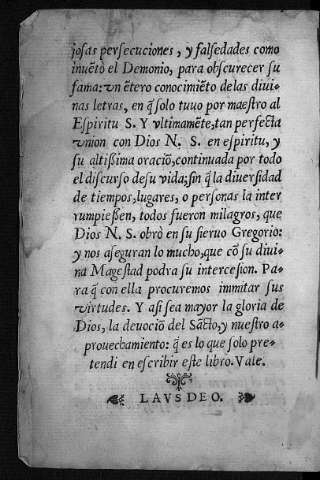 joſas perſecuciones, y falſedades como
inuẽtò el Demonio, para obſcurecer ſu
fama: vn ẽtero conocimiẽto delas diui-
nas letras, en q̃ ſolo tuuo por maeſtro al
Eſpiritu S. Y vltimamẽte, tan perfecta
vnion con Dios N. S. en eſpiritu, y
ſu altiſsima oraciõ, continuada por todo
el diſcurſo deſu vida; ſin q̃ la diuerſidad
de tiempos, lugares, o perſonas la inter
rumpieſſen, todos fueron milagros, que
Dios N. S. obrò en ſu ſieruo Gregorio:
y nos aſeguran lo mucho, que cõ ſu diui-
na Mageſtad podra ſu interceſion. Pa-
ra q̃ con ella procuremos immitar ſus
virtudes. Y aſi ſea mayor la gloria de
Dios, la deuociõ del Sãcto, y nueſtro a-
prouechamiento: q̃ es lo que ſolo pre-
tendi en eſcribir eſte libro. Vale.
LAVS DEO.